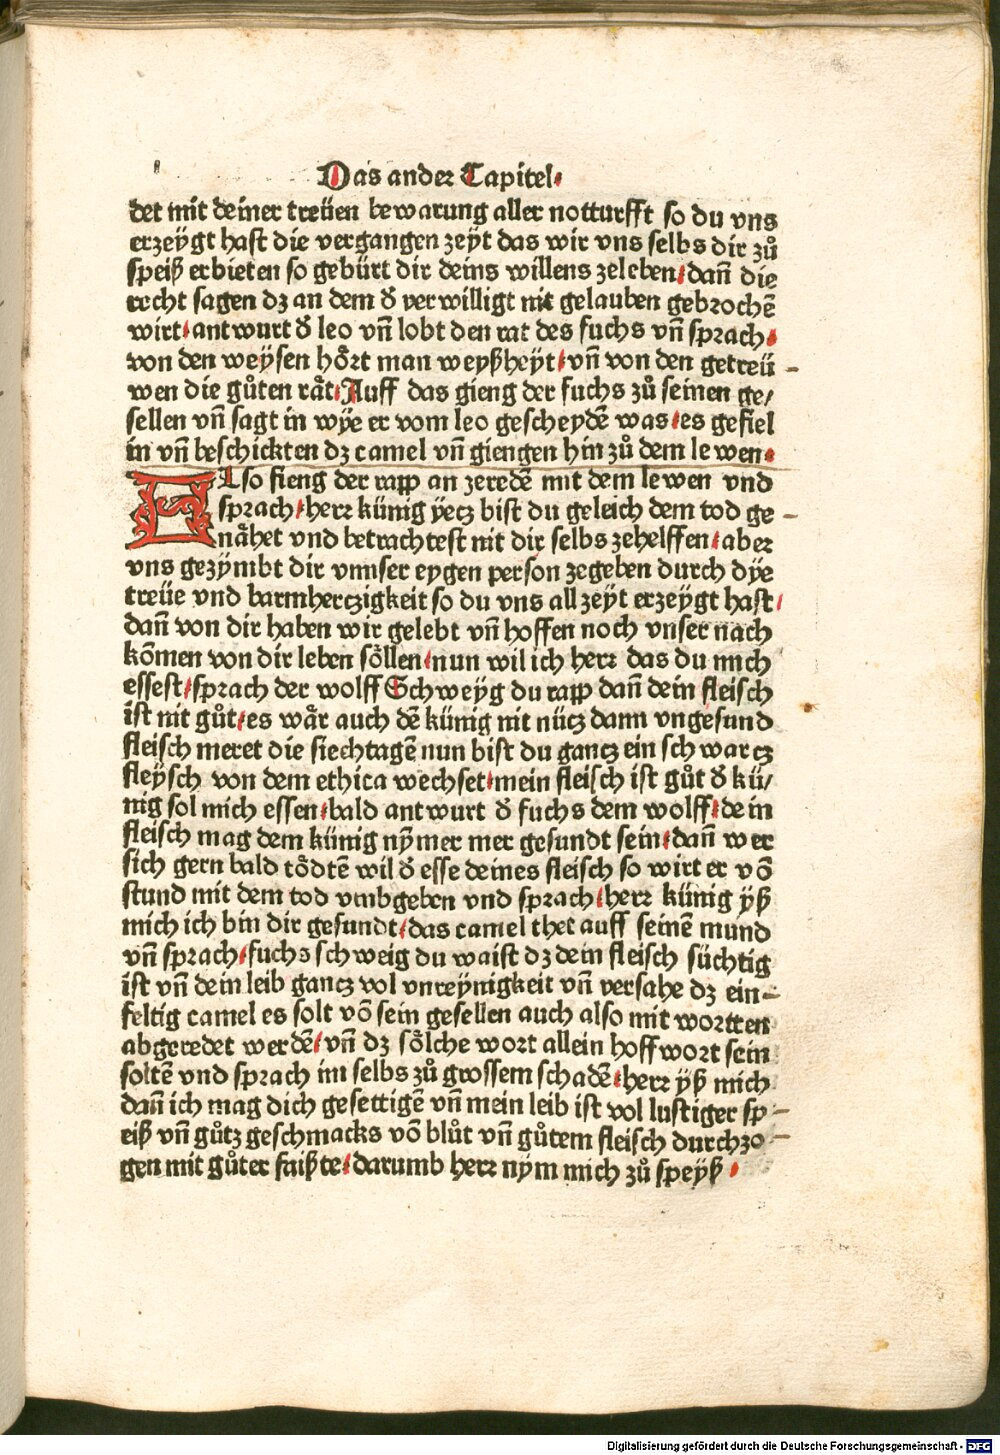 Das ander Capitel·
det mit deiner treüen bewarung aller notturfft so du vns
erzeÿgt hast die vergangen zeÿt das wir vns selbs dir zů
speiß erbieten so gebürt dir deins willens zeleben·dañ die
recht sagen dz an dem d̕ verwilligt nit gelauben gebrochē
wirt·antwurt d̕ leo vñ lobt den rat des fuchs vñ sprach·
von den weÿsen hoͤrt man weyßheÿt·vñ von den getreü-
wen die gůten raͤt·Auff das gieng der fuchs zů seinen ge/
sellen vñ sagt in wÿe er vom leo gescheydē was·es gefiel
in vñ beschickten dz camel vñ giengen hin zů dem lewen·
ALso fieng der rapp an zeredē mit dem lewen vnd
sprach·herr künig ÿecz bist du geleich dem tod ge-
naͤhet vnd betrachtest nit dir selbs zehelffen·aber
vns gezÿmbt dir vnnser eygen person zegeben durch dÿe
treüe vnd barmherczigkeit so du vns allzeÿt erzeÿgt hast·
dañ von dir haben wir gelebt vñ hoffen noch vnser nach
kōmen von dir leben soͤllen·nun wil ich herr das du mich
essest·sprach der wolff Schweÿg du rapp dañ dein fleisch
ist nit gůt·es waͤr auch dē künig nit nücz dann vngesund
fleisch meret die siechtagē nun bist du gancz ein schwarcz
fleÿsch von dem ethica wechset·mein fleisch ist gůt d̕ kü/
nig sol mich essen·bald antwurt d̕ fuchs dem wolff·dein
fleisch mag dem künig nÿmer mer gesundt sein·dañ wer
sich gern bald toͤdtē wil d̕ esse deines fleisch so wirt er vō
stund mit dem tod vmbgeben vnd sprach·herr künig ÿß
mich ich bin dir gesundt·das camel thet auff seinē mund
vñ sprach·fuchs schweig du waist dz dein fleisch süchtig
ist vñ dein leib gancz vol vnreÿnigkeit vñ versahe dz ein-
feltig camel es solt vō sein gesellen auch also mit wortten
abgeredet werdē·vñ dz soͤlche wort allein hoffwort sein
soltē vnd sprach im selbs zů grossem schadē·herr ÿß mich
dañ ich mag dich gesettigē vñ mein leib ist vol lustiger sp-
eiß vñ gůtz geschmacks vō blůt vñ gůtem fleisch durchzo-
gen mit gůter faißte·darumb herr nÿm mich zů speÿß·
Digitalisierung gefördert durch die Deutsche Forschungsgemeinschaft - DFG